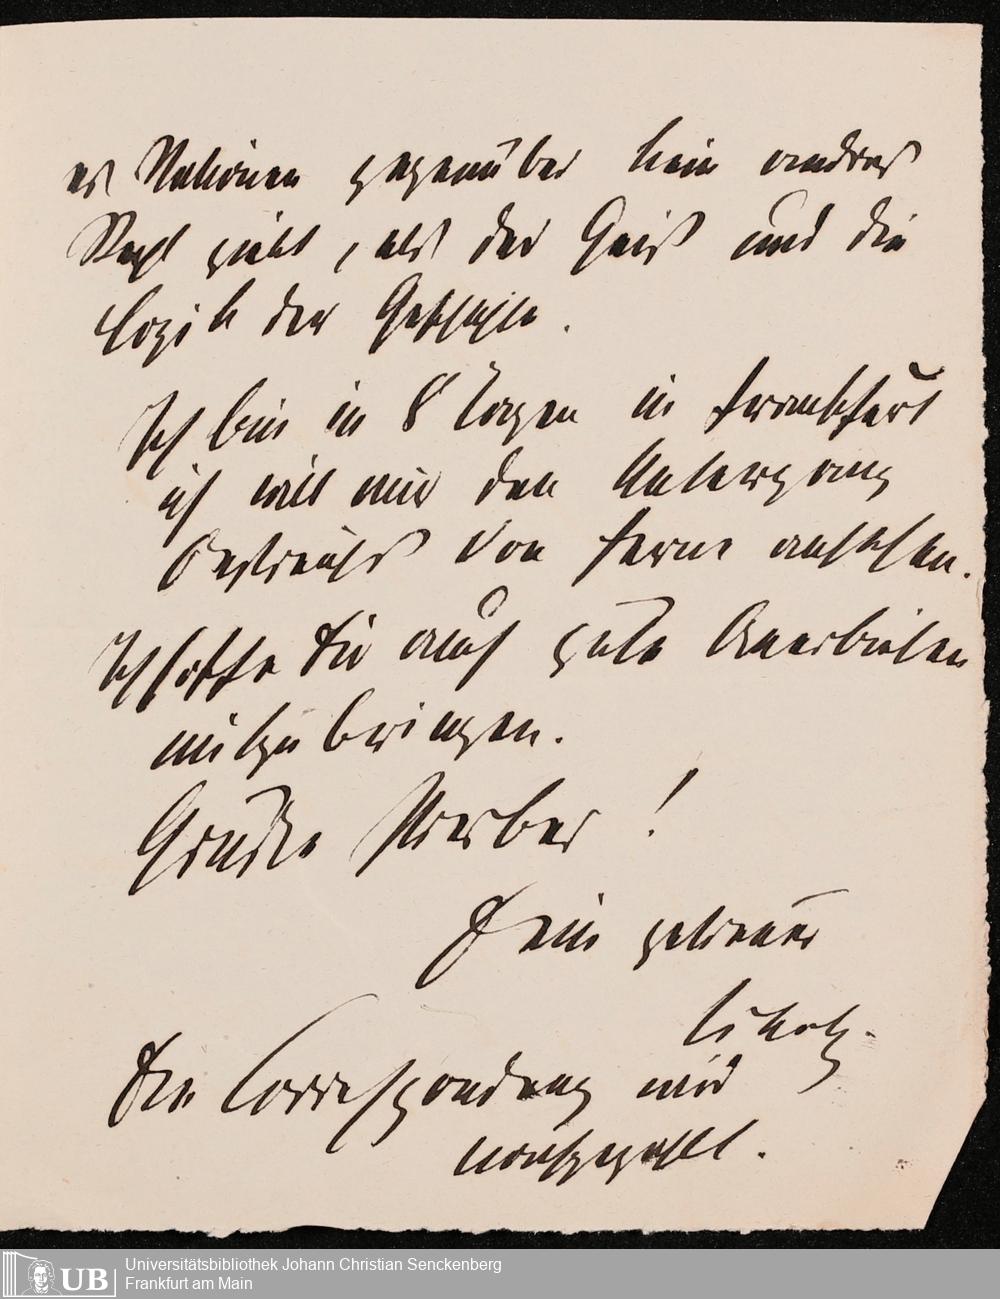 es Nationen gegenüber kein andres
Recht giebt, als der Geist und die
Logik der Geschichte.
Ich bin in 8 Tagen in Frankfurt
ich will mir den Untergang
Oestreichs von ferne ansehen.
Ich hoffe Dir auch gute Anerbieten
mitzubringen.
Grüße
Dein getreuer
Die Correspondenz wird
UB
Universitätsbibliothek Johann Christian Senckenberg
Frankfurt am Main